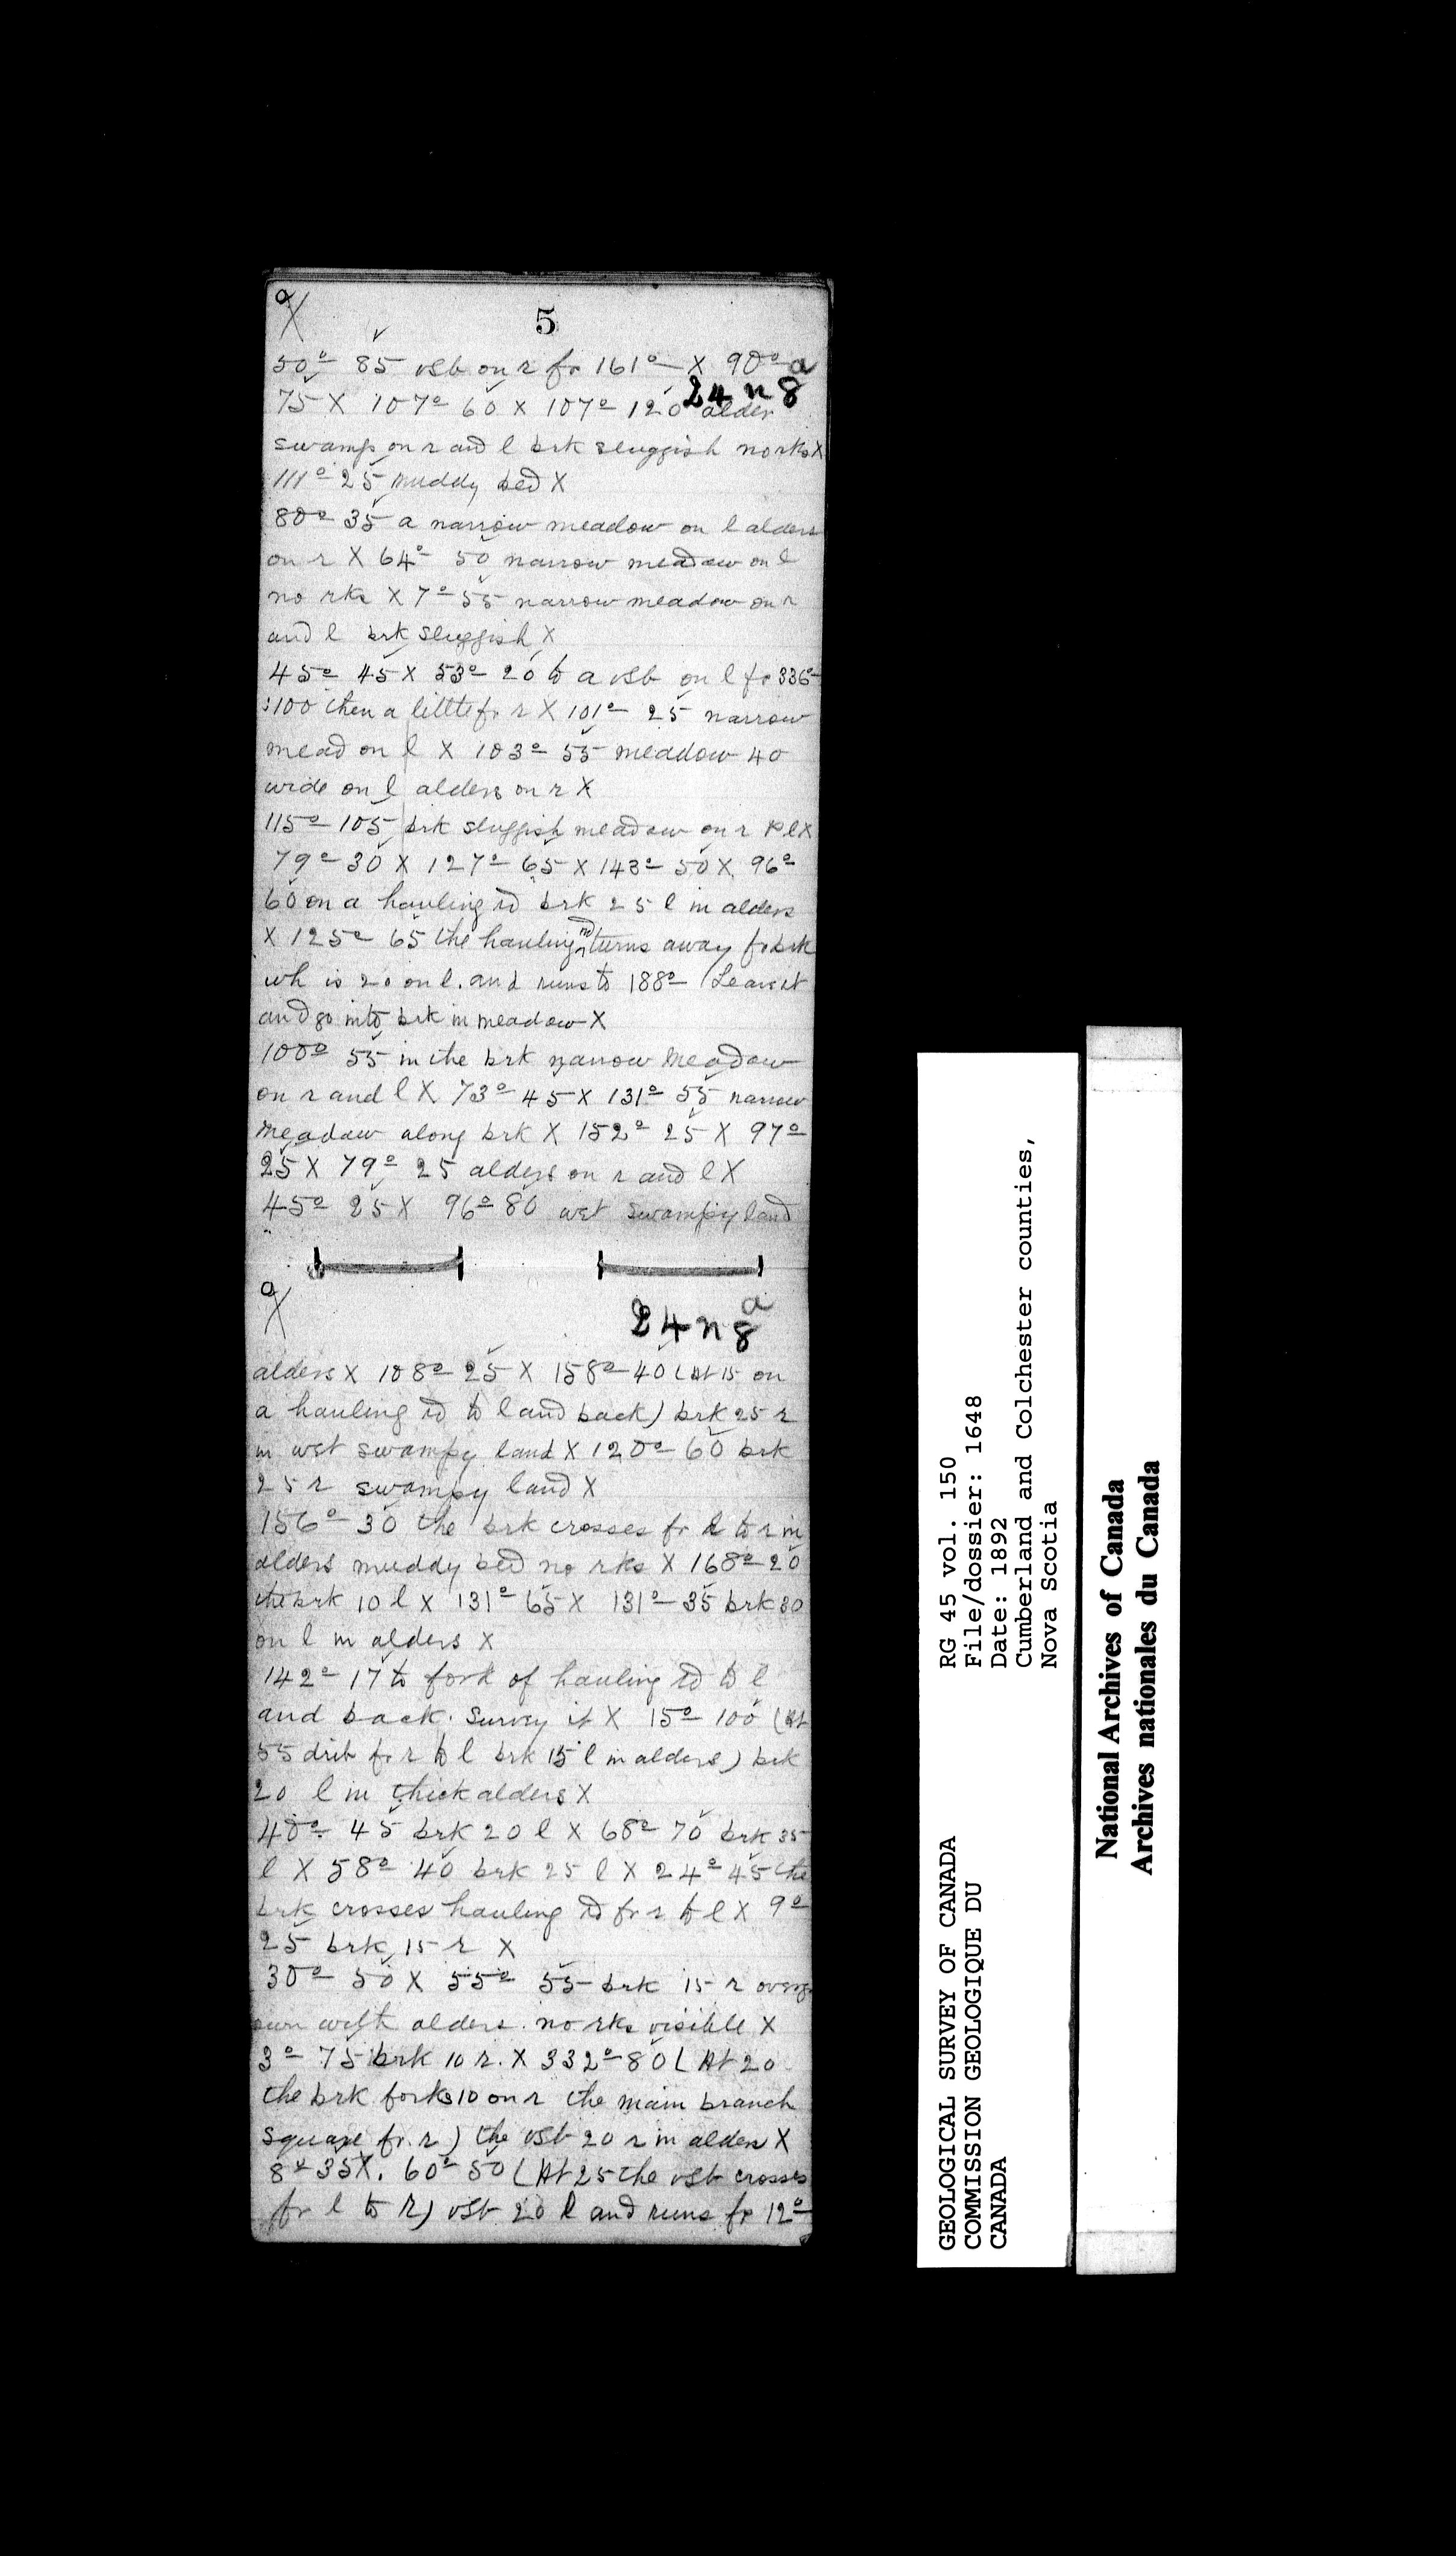 a
X
5
50º 85 vsb on r fr 161º X 90º a
24 n 8
75 X 107º 60 X 107º 120 alder
swamp on r and l brk sluggish no rks X
111º 25 muddy bed X
80º 35 a narrow meadow on l alders
on r X 64º 50 narrow meadow on l
no rks X 7º 55 narrow meadow on r
and l brk sluggish X
45º 45 X 53º 20 to a vsb on l fr 336º
100 then a little fr r X 101º 25 narrow
mead on l X 103º 55 meadow 40
wide on l alders on r X
115º 105 brk sluggish meadow on r & l X
79º 30 X 127º 65 X 143º 50 X 96º
60 on a hauling rd brk 25 l in alders
X 125º 65 the hauling rd turns away fr brk
wh is 20 on l. and runs to 188º (Leave it
and go into brk in meadow X
100º 55 in the brk narrow meadow
on r and l X 73º 45 X 131º 55 narrow
meadow along brk X 152º 25 X 97º
25 X 79º 25 alders on r and l X
45º 25 X 96º 80 wet swampy land
a
X
24 n 8 a
alders X 108º 25 X 158º 40 (At 15 on
a hauling rd to l and back) brk 25 r
in wet swampy land X 120º 60 brk
25 r swampy land X
156º 30 the brk crosses fr l to r in
alders muddy bed no rks X 168º 20
the brk 10 l X 131º 65 X 131º 35 brk 30
on l in alders X
142º 17 to fork of hauling rd to l
and back. Survey it X 15º 100 (At
55 drib fr r to l brk 15 l in alders) brk
20 l in thick alders X
40º 45 brk 20 l X 68º 70 brk 35
l X 58º 40 brk 25 l X 24º 45 the
brk crosses hauling rd fr r to l X 9º
25 brk 15 r X
30º 50 X 55º 55 brk 15 r overgr
own with alders. no rks visible X
3º 75 brk 10 r. X 332º 80 (At 20
the brk forks 10 on r the main branch
square fr. r) the vsb 20 r in alders X
8º 35 X. 60º 50 (At 25 the vsb crosses
fr l to r) vsb 20 l and runs fr 12º
GEOLOGICAL SURVEY OF CANADA
COMMISSION GEOLOGIQUE DU
CANADA
RG 45 vol. 150
File/dossier: 1648
Date: 1892
Cumberland and Colchester counties,
Nova Scotia
National Archives of Canada
Archives nationales du Canada